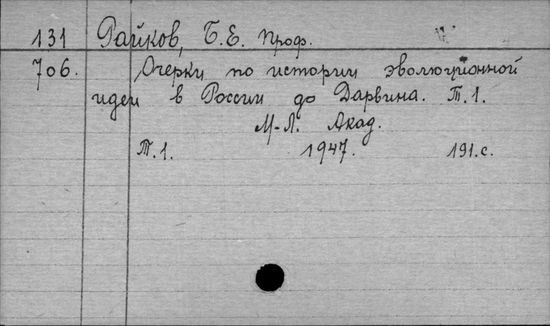 131 Райков, Б.Е. проф.
706. Очерки по истории эволюционной
идеи в России до Дарвина. Т.1.
М-Л. Акад.
Т.1. 1947. 191.с.